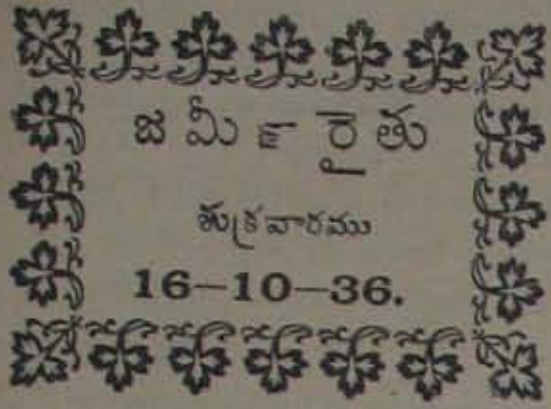 జమీ౯ రైతు
శుక్రవారము
16—10—36.